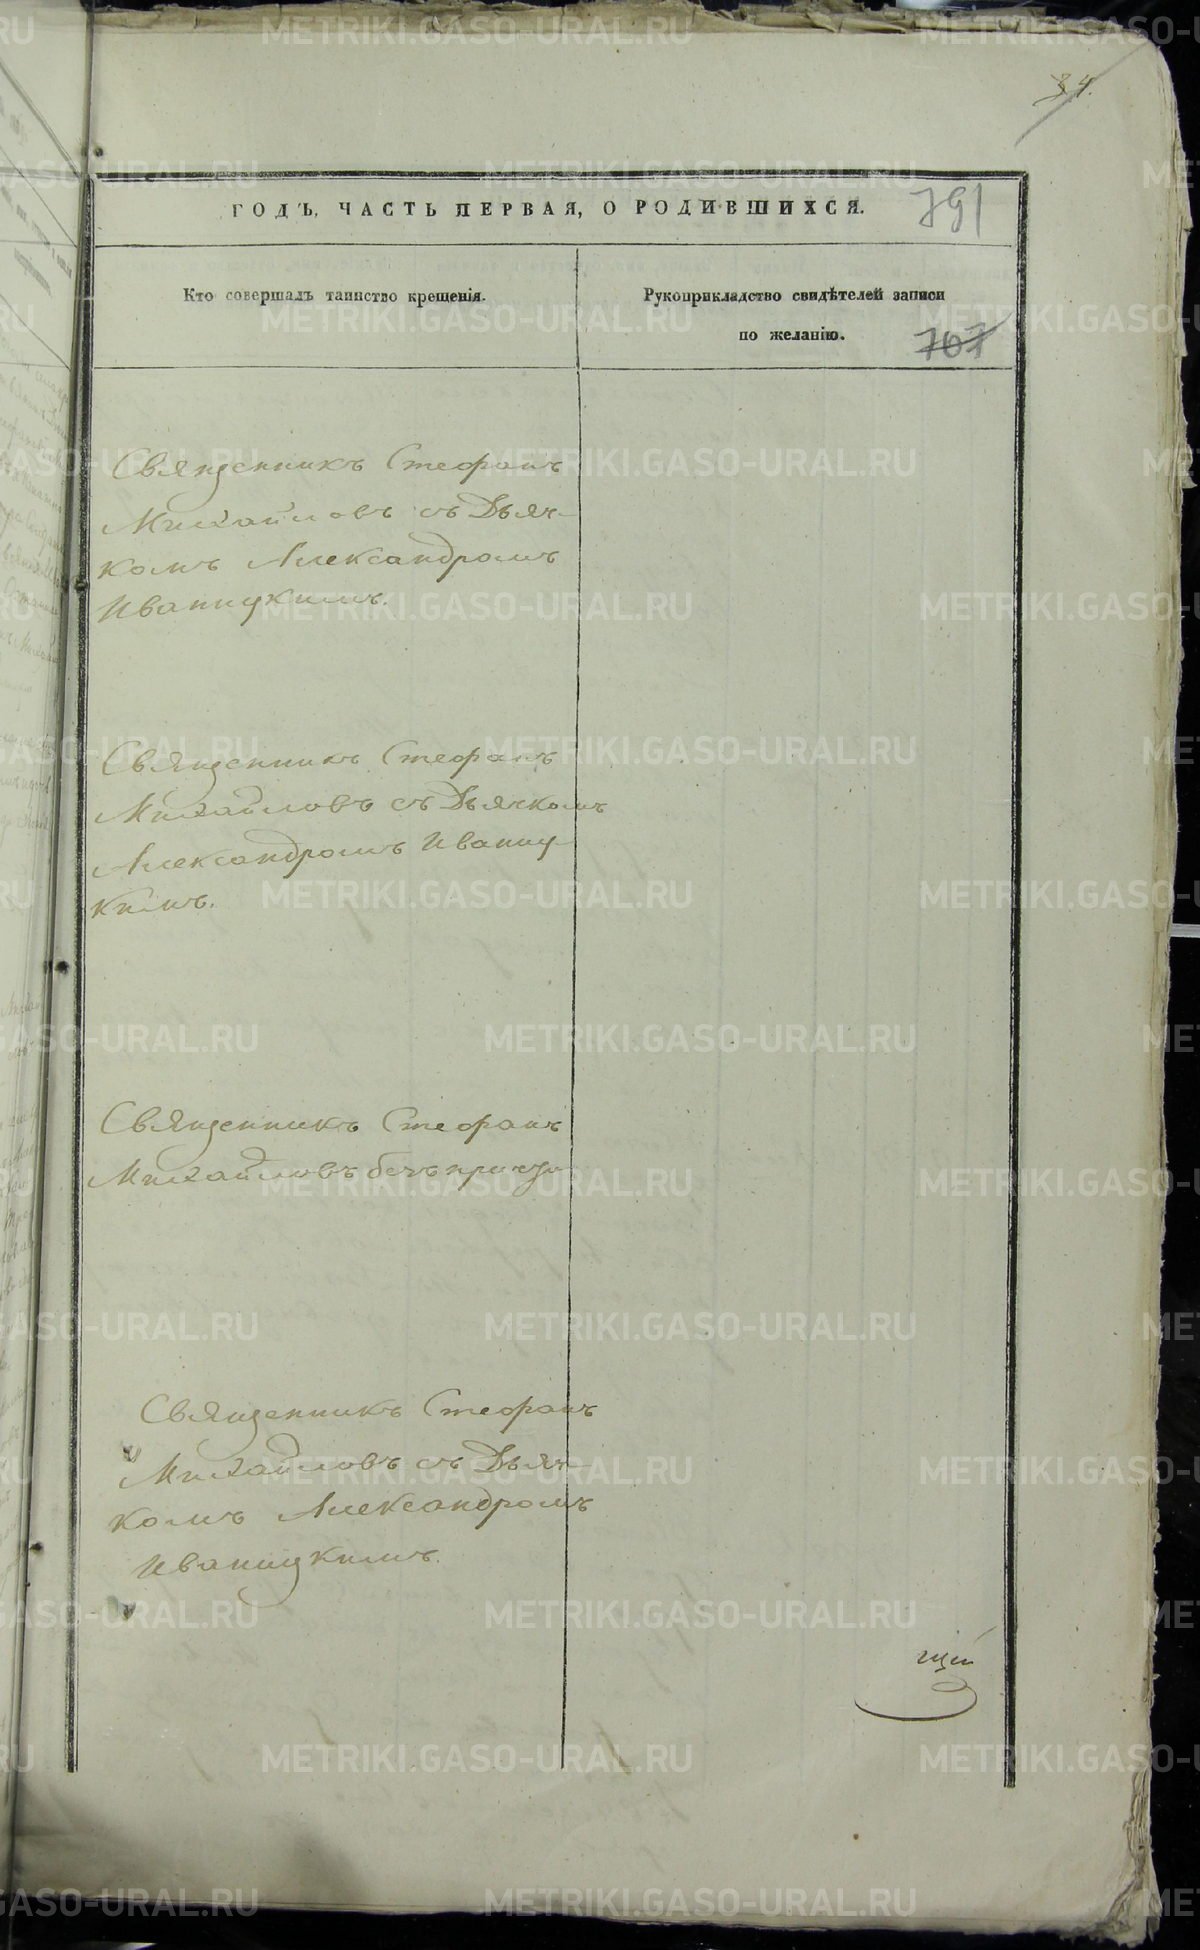 34.
ГОДЪ, ЧАСТЬ ПЕРВАЯ, О РОДИВШИХСЯ.
791
Кто совершалъ таинство крещенія.
Рукоприкладство свидѣтелей записи
по желанію.
707
Священникъ Стефанъ
Михайловъ съ Дьяч-
комъ Александромъ
Иваницкимъ.
Священникъ Стефанъ
Михайловъ съ Дьячкомъ
Александромъ Иваниц-
кимъ.
Священникъ Стефанъ
Михайловъ безъ причта
Священникъ Стефанъ
Михайловъ съ Дьяч-
комъ Александромъ
Иваницкимъ.
щій
METRIKI.GASO-URAL.RU